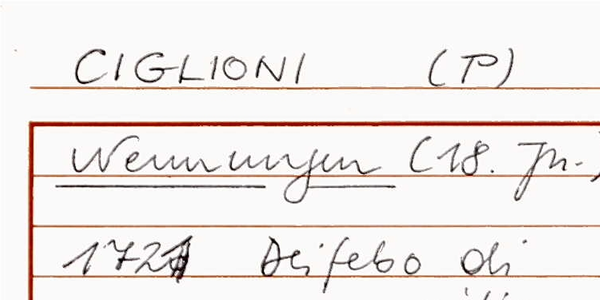 CIGLIONI (P)
Nennungen (18. Jh.)
1721 Deifebo di